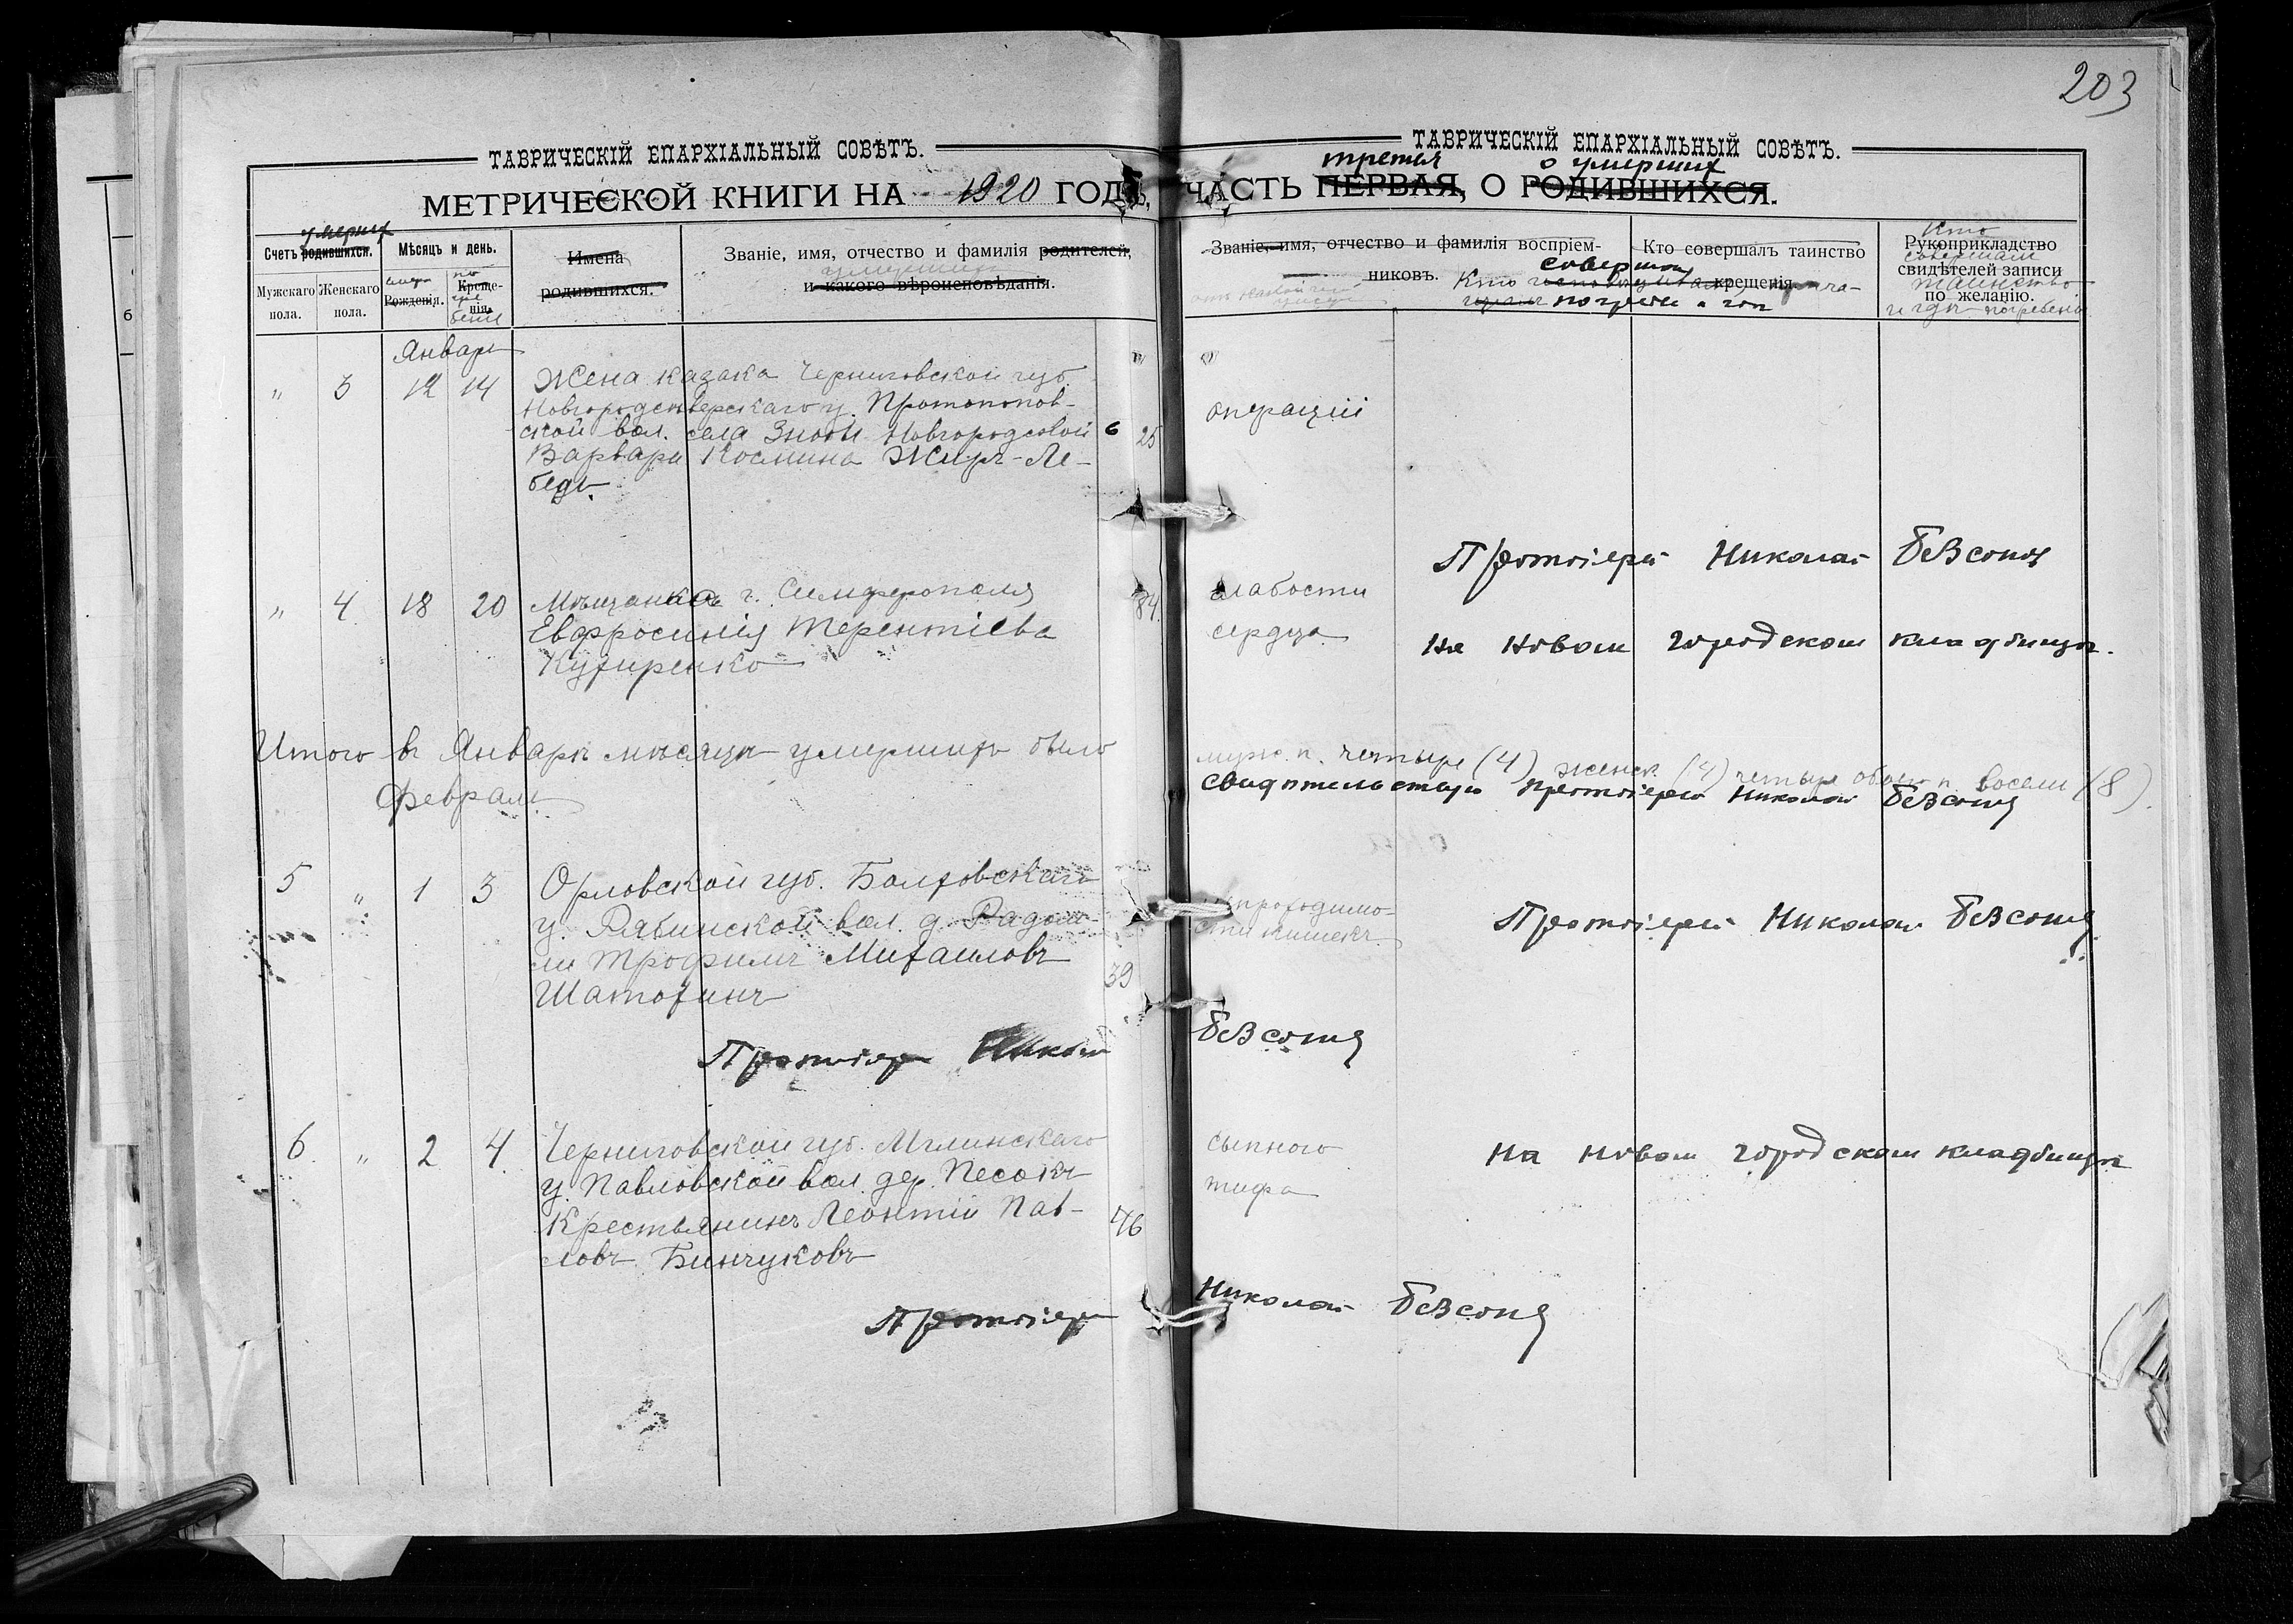 203
ТАВРИЧЕСКІЙ ЕПАРХІАЛЬНЫЙ СОВѢТЪ.
МЕТРИЧЕСКОЙ КНИГИ НА 1920 ГОДЪ,
умершихъ
Счетъ родившихся.
Мѣсяцъ и день.
Имена
родившихся.
Званіе, имя, отчество и фамилія родителей,
и какого вѣроисповѣданія.
Мужскаго пола.
Женскаго пола.
Рожденія.
Креще-
нія.
Январь
" 3 12 14 Жена казака Черниговской губ.
Новгородсѣверскаго у. Протопопов-
ской вол. села Новгородсовой 25
Варвара Космина Жиръ-Ле-
бедь.
" 4 18 20 Мѣщанка г. Симферополя 84
Евфросинія Терентіева
Итого въ Январѣ мѣсяцѣ умершихъ было
Февраль
5 " 1 3 Орловской губ. Болховскаго
у. Рябинской вол. д. Радом-
ли Трофимъ Михаиловъ 39
Шатохинъ
Протоіерей Николай
6 " 2 4 Черниговской губ. Мглинскаго
у. Павловской вол. дер. Песокъ
Крестьянинъ Леонтій Пав- 46
ловъ Бинчуковъ
Протоіерей
ТАВРИЧЕСКІЙ ЕПАРХІАЛЬНЫЙ СОВѢТЪ.
третья о умершихъ
ЧАСТЬ ПЕРВАЯ, О РОДИВШИХСЯ.
Званіе, имя, отчество и фамилія воспріем-
никовъ.
Кто совершалъ таинство
крещенія
Кто
Рукоприкладство
совершалъ
свидѣтелей записи
таинство
по желанію.
и гдѣ погребенія
операціи
Протоіерей Николай Безсоновъ
слабости
сердца
на новом городском кладбищѣ.
муж. п. четыре (4) женск. (4) четыре обоего п. восемь (8).
свидѣтельствую протоіерей Николай Безсоновъ
непроходимо-
сти кишекъ.
Протоіерей Николай Безсоновъ
Безсоновъ
сыпного
тифа
на новом городском кладбищѣ
Николай Безсоновъ